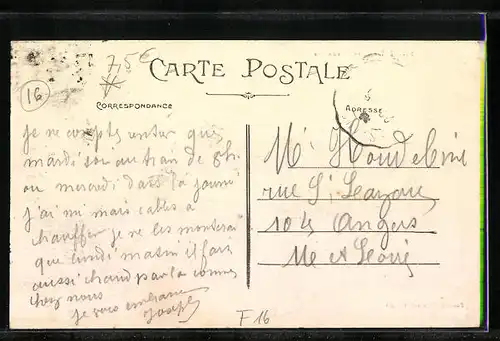 16
7,5€
CARTE POSTALE
CORRESPONDANCE
ADRESSE
je ne compte rentrer que
mardi soir au train de 8h.
ou mercredi dans la journée
j'ai mes cables à
chauffer je ne les monterai
que lundi matin il fait
aussi chaud par la comme
chez nous
je vous embrasse
Joseph
Mr Houdebine
rue St Lazare
104 Angers
Me et Loire
F 16